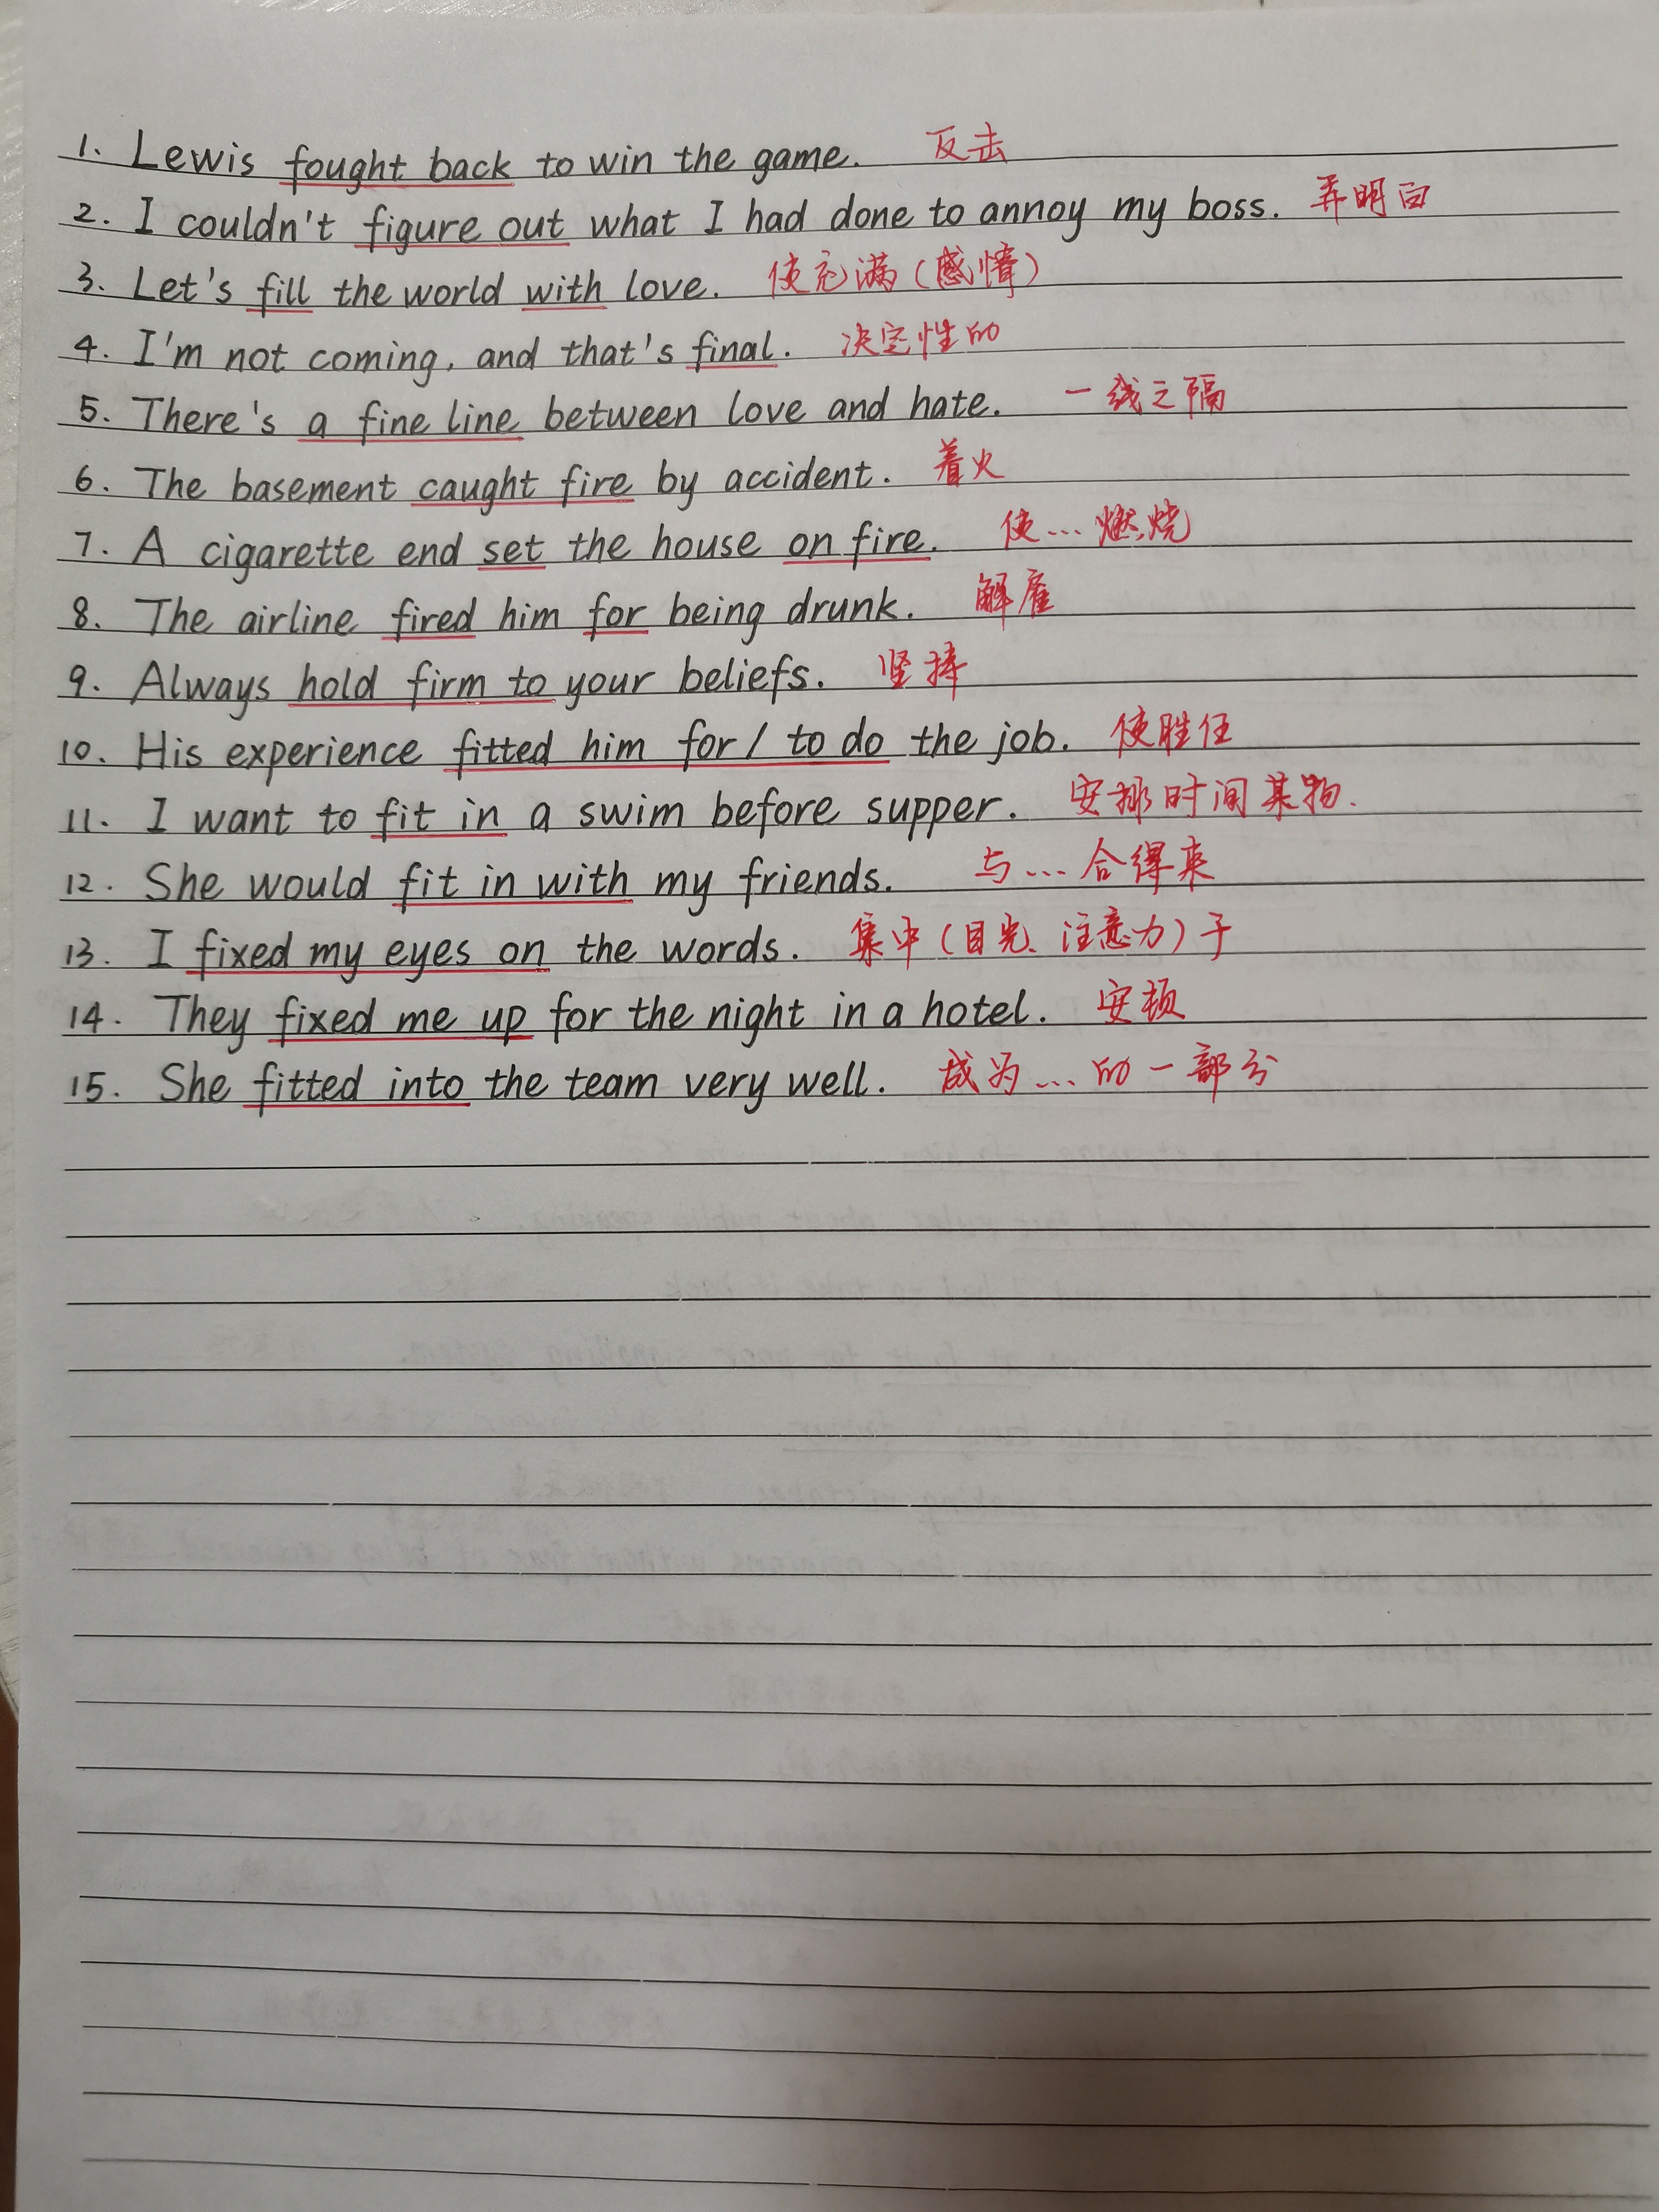 1. Lewis fought back to win the game. 反击
2. I couldn't figure out what I had done to annoy my boss. 弄明白
3. Let's fill the world with love. 使充满(感情)
4. I'm not coming, and that's final. 决定性的
5. There's a fine line between love and hate. 一线之隔
6. The basement caught fire by accident. 着火
7. A cigarette end set the house on fire. 使...燃烧
8. The airline fired him for being drunk. 解雇
9. Always hold firm to your beliefs. 坚持
10. His experience fitted him for / to do the job. 使胜任
11. I want to fit in a swim before supper. 安排时间某物.
12. She would fit in with my friends. 与...合得来
13. I fixed my eyes on the words. 集中(目光、注意力)于
14. They fixed me up for the night in a hotel. 安顿
15. She fitted into the team very well. 成为...的一部分